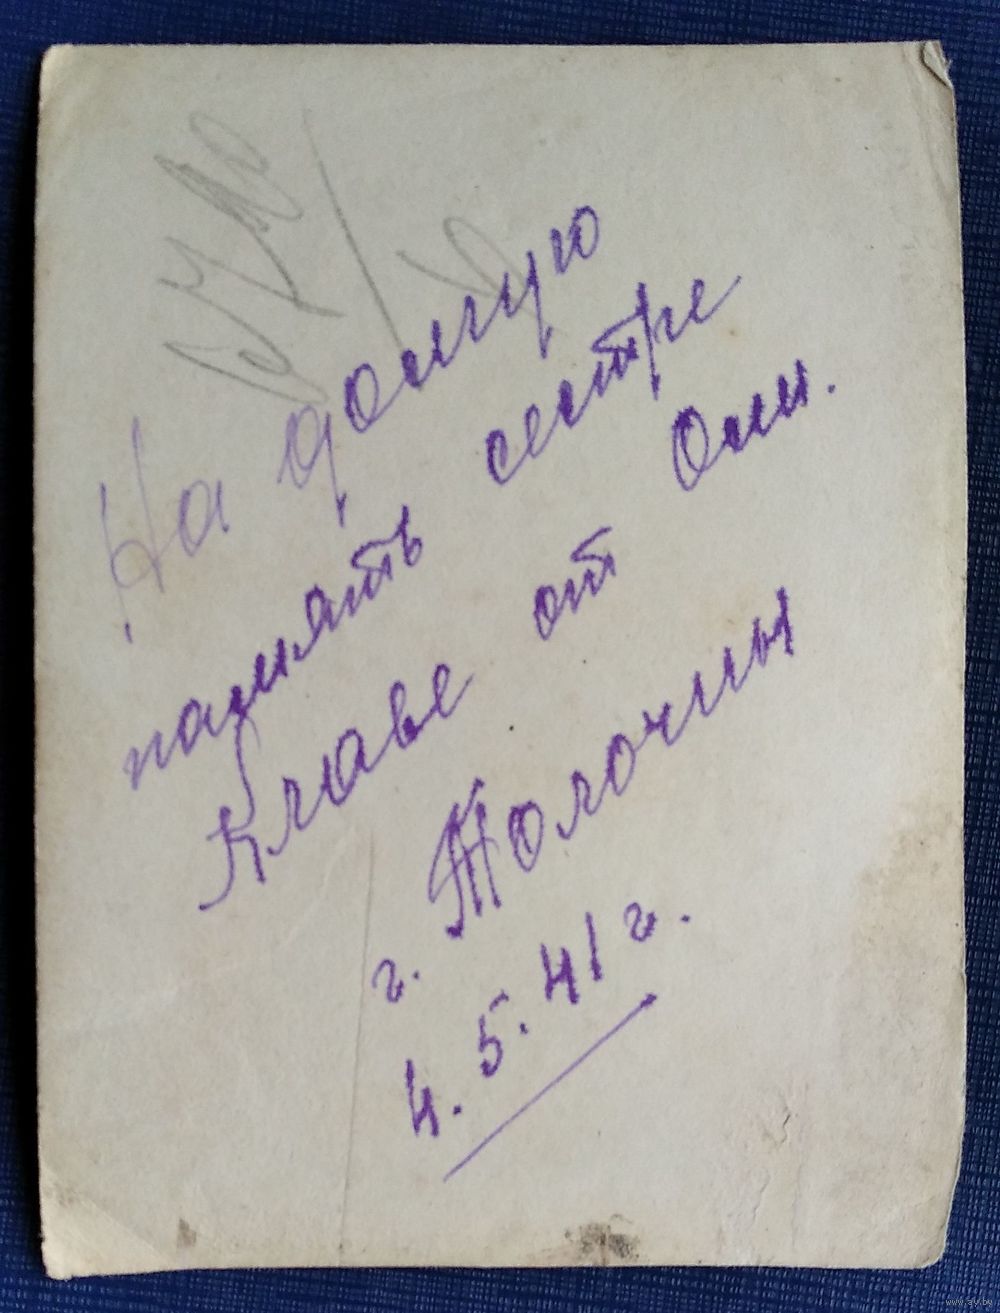 На долгую
память сестре
Клаве от Оли.
г. Толочин
4.5.41 г.
www.ay.by